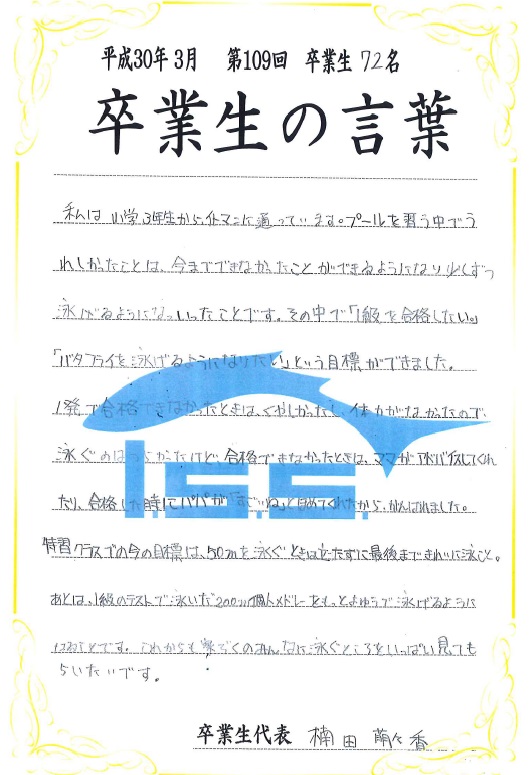 平成30年3月 第109回 卒業生72名
卒業生の言葉
私は小学3年生からイトマンに通っています。プールを習う中でう
れしかったことは、今までできなかったことができるようになり少しずつ
泳げるようになっていったことです。その中で「1級を合格したい。」
「バタフライを泳げるようになりたい」という目標ができました。
1発で合格できなかったときは、くやしかったし、体力がなかったので、
泳ぐのはつらかったけど、合格できなかったときは、ママがアドバイスしてくれ
たり、合格した時にパパが「すごいね」とほめてくれたから、がんばれました。
I.S.S.
特習クラスでの今の目標は、50mを泳ぐときは立たずに最後まできれいに泳ぐこと。
あとは、1級のテストで泳いだ200m個人メドレーをもっとよゆうで泳げるように
なることです。これからも家ぞくのみんなに泳ぐところをいっぱい見ても
らいたいです。
卒業生代表 楠田 萌々香